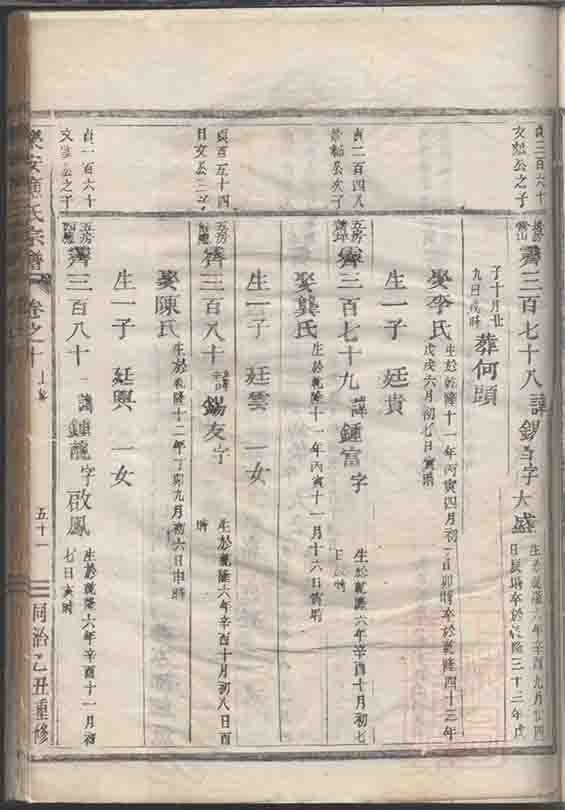 貞三百六十
文 公之子
齊三百七十八 諱錫 字大盛
生於乾隆六年辛酉九月廿四
日辰時卒於乾隆三十三年戊
子十月廿
九日 時
葬何頭
娶李氏
生於乾隆十一年丙寅四月初二日卯時卒於乾隆四十三年
戊戌六月初七日寅時
生一子 廷貴
貞二百四八
公次子
五房
齊三百七十九 諱鍾富 字
生於乾隆六年辛酉十月初七
時
娶龔氏
生於乾隆十一年丙寅十一月十六日寅時
生一子 廷雲 一女
貞百五十四
日文公三子
五房
齊三百八十
諱
錫友 字
生於乾隆六年辛酉十月初八日酉
時
娶陳氏
生於乾隆十二年丁卯九月初六日申時
生一子 廷興 一女
貞一百六十
文 公之子
五房
齊三百八十一 諱鍾龍 字啟鳳
生於乾隆六年辛酉十一月初
七日寅時
樂安 氏宗譜 卷之十 五十一 同治乙丑重修